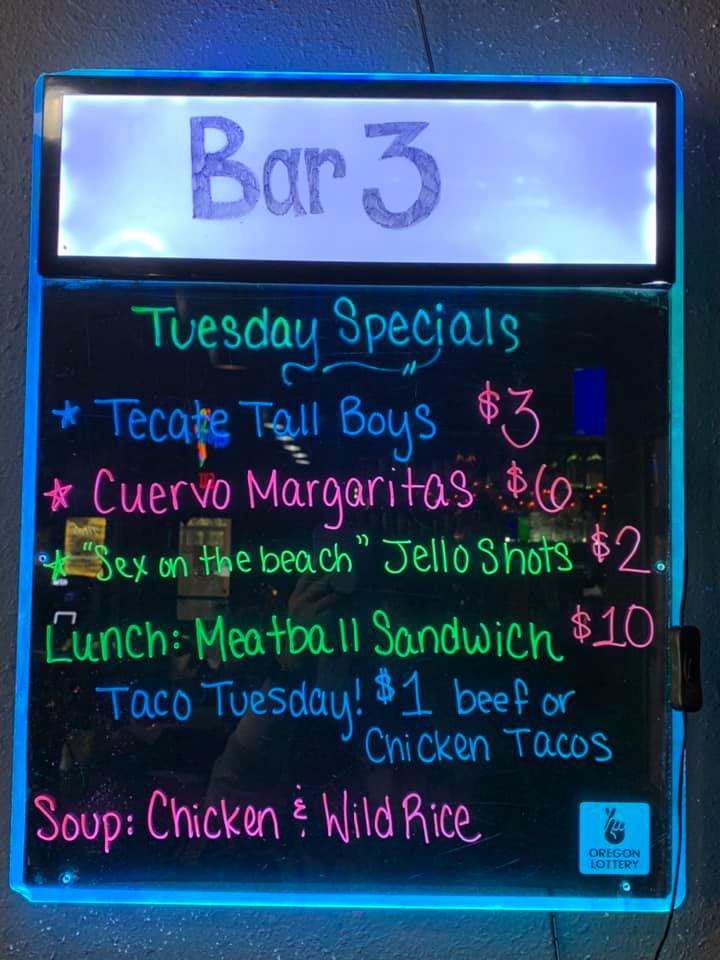 Bar 3
Tuesday Specials
Tecate Tall Boys $3
Cuervo Margaritas $6
"Sex on the beach" Jello Shots $2
Lunch: Meatball Sandwich $10
Taco Tuesday! $1 beef or
Chicken Tacos
Soup: Chicken & Wild Rice
OREGON
LOTTERY